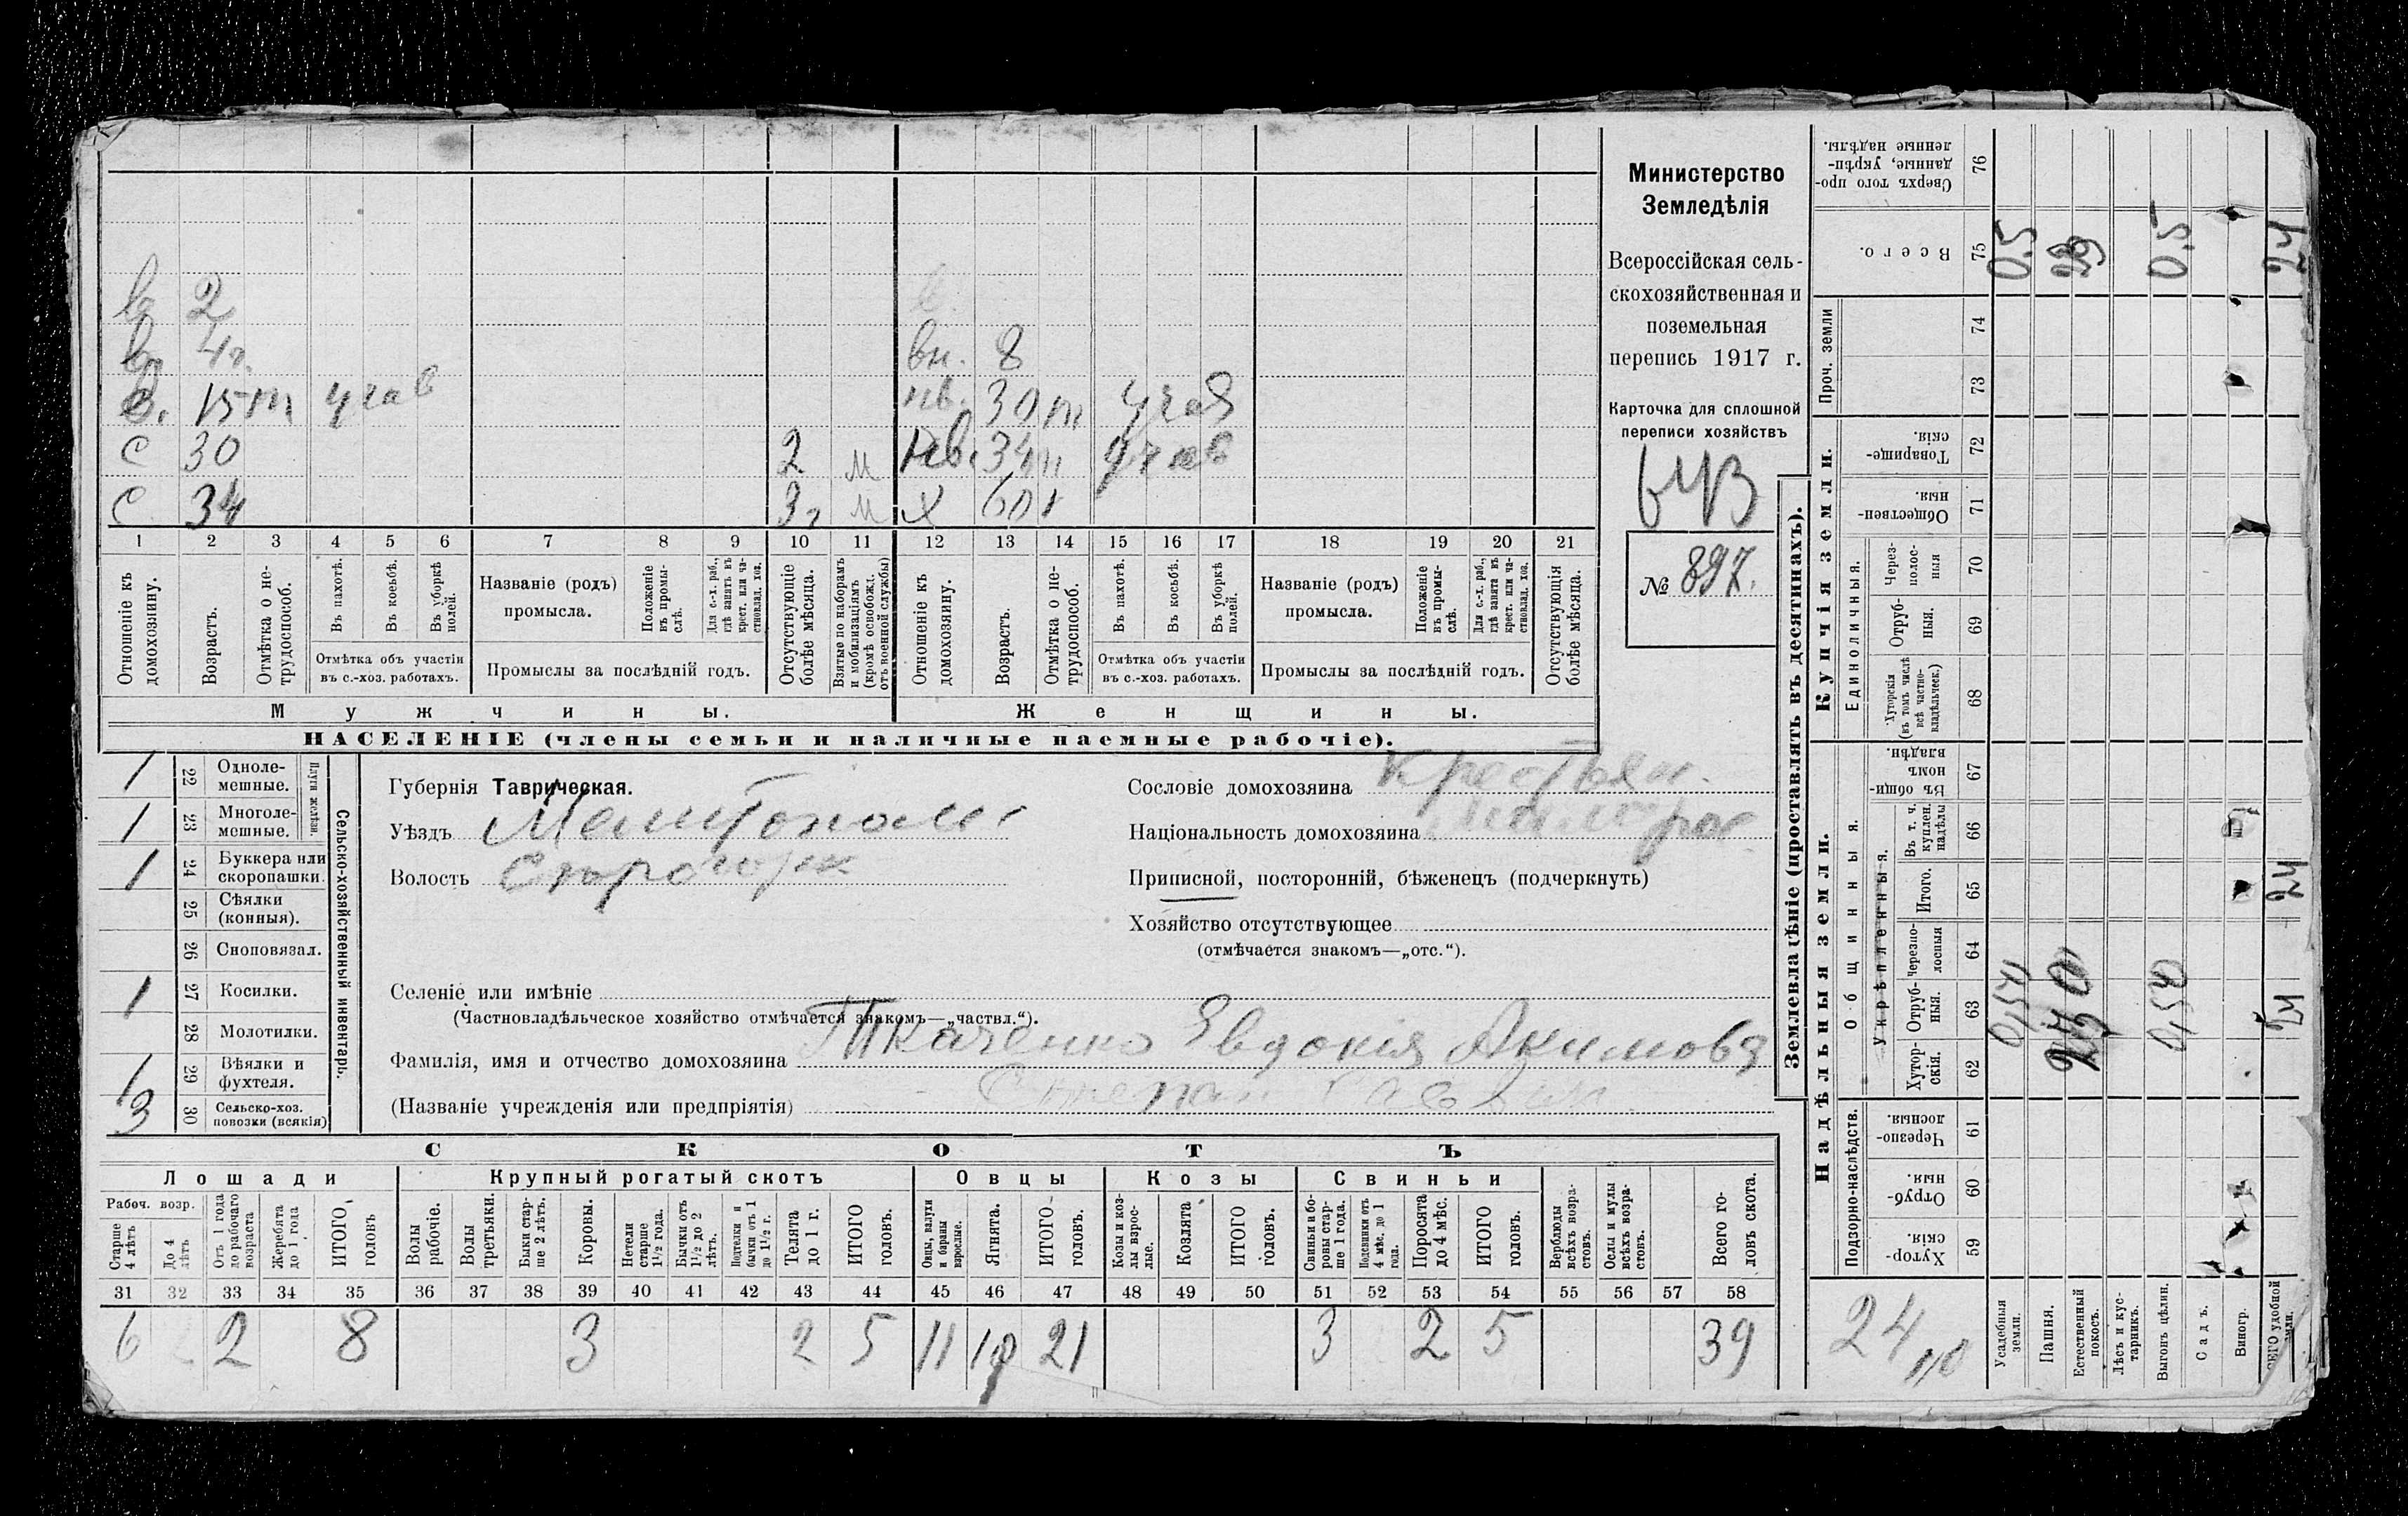 в 2
в. 4 г.
вн. 8
в. 15 т учав
нв. 30 т учав
с 30 2 м
нв. 34 п учав
с 34 3 г м
х 60 г
1 2 3 4 5 6 7 8 9 10 11 12 13 14 15 16 17 18 19 20 21
Отношеніе къ домохозяину.
Возрастъ.
Отмѣтка о нетрудоспособ.
Въ пахотѣ.
Въ косьбѣ.
Въ уборкѣ полей.
Отмѣтка объ участіи
въ с.-хоз. работахъ.
Названіе (родъ)
промысла.
Положеніе въ промыслѣ.
Для с.-х. раб., гдѣ занятъ въ крест. или частновлад. хоз.
Промыслы за послѣдній годъ.
Отсутствующіе болѣе мѣсяца.
Взятые по наборамъ и мобилизаціямъ (кромѣ освобожд. отъ военной службы)
Отношеніе къ домохозяину.
Возрастъ.
Отмѣтка о нетрудоспособ.
Въ пахотѣ.
Въ косьбѣ.
Въ уборкѣ полей.
Отмѣтка объ участіи
въ с.-хоз. работахъ.
Названіе (родъ)
промысла.
Положеніе въ промыслѣ.
Для с.-х. раб., гдѣ занята въ крест. или частновлад. хоз.
Промыслы за послѣдній годъ.
Отсутствующія болѣе мѣсяца.
Мужчины.
Женщины.
НАСЕЛЕНІЕ (члены семьи и наличные наемные рабочіе).
Министерство
Земледѣлія
Всероссійская сель-
скохозяйственная и
поземельная
перепись 1917 г.
Карточка для сплошной
переписи хозяйствъ
№ 897.
Сельско-хозяйственный инвентарь.
Плуги желѣзн.
1 22 Одноле-
мешные.
1 23 Многоле-
мешные.
1 24 Буккера или
скоропашки.
25 Сѣялки
(конныя).
26 Сноповязал.
1 27 Косилки.
28 Молотилки.
1 29 Вѣялки и
фухтеля.
3 30 Сельско-хоз.
повозки (всякія)
Губернія Таврическая.
Уѣздъ Мелитопольс
Волость
Селеніе или имѣніе
(Частновладѣльческое хозяйство отмѣчается знакомъ—„частвл.“).
Фамилія, имя и отчество домохозяина Ткаченко Евдокія Акимова
(Названіе учрежденія или предпріятія) Степан
Сословіе домохозяина Крестьян.
Національность домохозяина
Приписной, посторонній, бѣженецъ (подчеркнуть)
Хозяйство отсутствующее
(отмѣчается знакомъ—„отс.“).
СКОТЪ
Лошади
Крупный рогатый скотъ
Овцы
Козы
Свиньи
Рабоч. возр.
Старше 4 лѣтъ
До 4 лѣтъ
Отъ 1 года до рабочаго возраста
Жеребята до 1 года
ИТОГО головъ
Волы рабочіе.
Волы третьяки.
Быки старше 2 лѣтъ.
Коровы.
Нетели старше 1½ года.
Бычки отъ 1½ до 2 лѣтъ.
Подтелки и бычки отъ 1 до 1½ г.
Телята до 1 г.
ИТОГО головъ.
Овцы, валухи и бараны взрослые.
Ягнята.
ИТОГО головъ.
Козы и козлы взрослые.
Козлята
ИТОГО головъ.
Свиньи и боровы старше 1 года.
Подсвинки отъ 4 мѣс. до 1 года.
Поросята до 4 мѣс.
ИТОГО головъ.
Верблюды всѣхъ возрастовъ.
Ослы и мулы всѣхъ возрастовъ.
Всего головъ скота.
31 32 33 34 35 36 37 38 39 40 41 42 43 44 45 46 47 48 49 50 51 52 53 54 55 56 57 58
6 2 8 3 2 5 11 10 21 3 2 5 39
Землевладѣніе (проставлять въ десятинахъ).
Купчія земли.
Надѣльныя земли.
Сверхъ того проданные, укрѣпленные надѣлы. 76
Всего. 75 0,5 23 0,5 24
Проч. земли
74
73
Товарищескія. 72
Общественныя. 71
Единоличныя.
Черезполосныя 70
Отрубныя. 69
Хуторскія (въ томъ числѣ всѣ частновладѣльческ.) 68
Общинныя.
Въ общиномъ владѣн. 67
Укрѣпленныя.
Въ т. ч. куплен. надѣлы 66
Итого. 65 24
Черезполосныя 64
Отрубныя. 63 24
Хуторскія. 62
Подворно-наслѣдств.
Черезполосныя. 61
Отрубныя. 60
Хуторскія. 59
24
Усадебныя земли.
Пашня.
Естественный покосъ.
Лѣсъ и кустарникъ.
Выгонъ цѣлин.
Садъ.
Виногр.
ВСЕГО удобной земли.